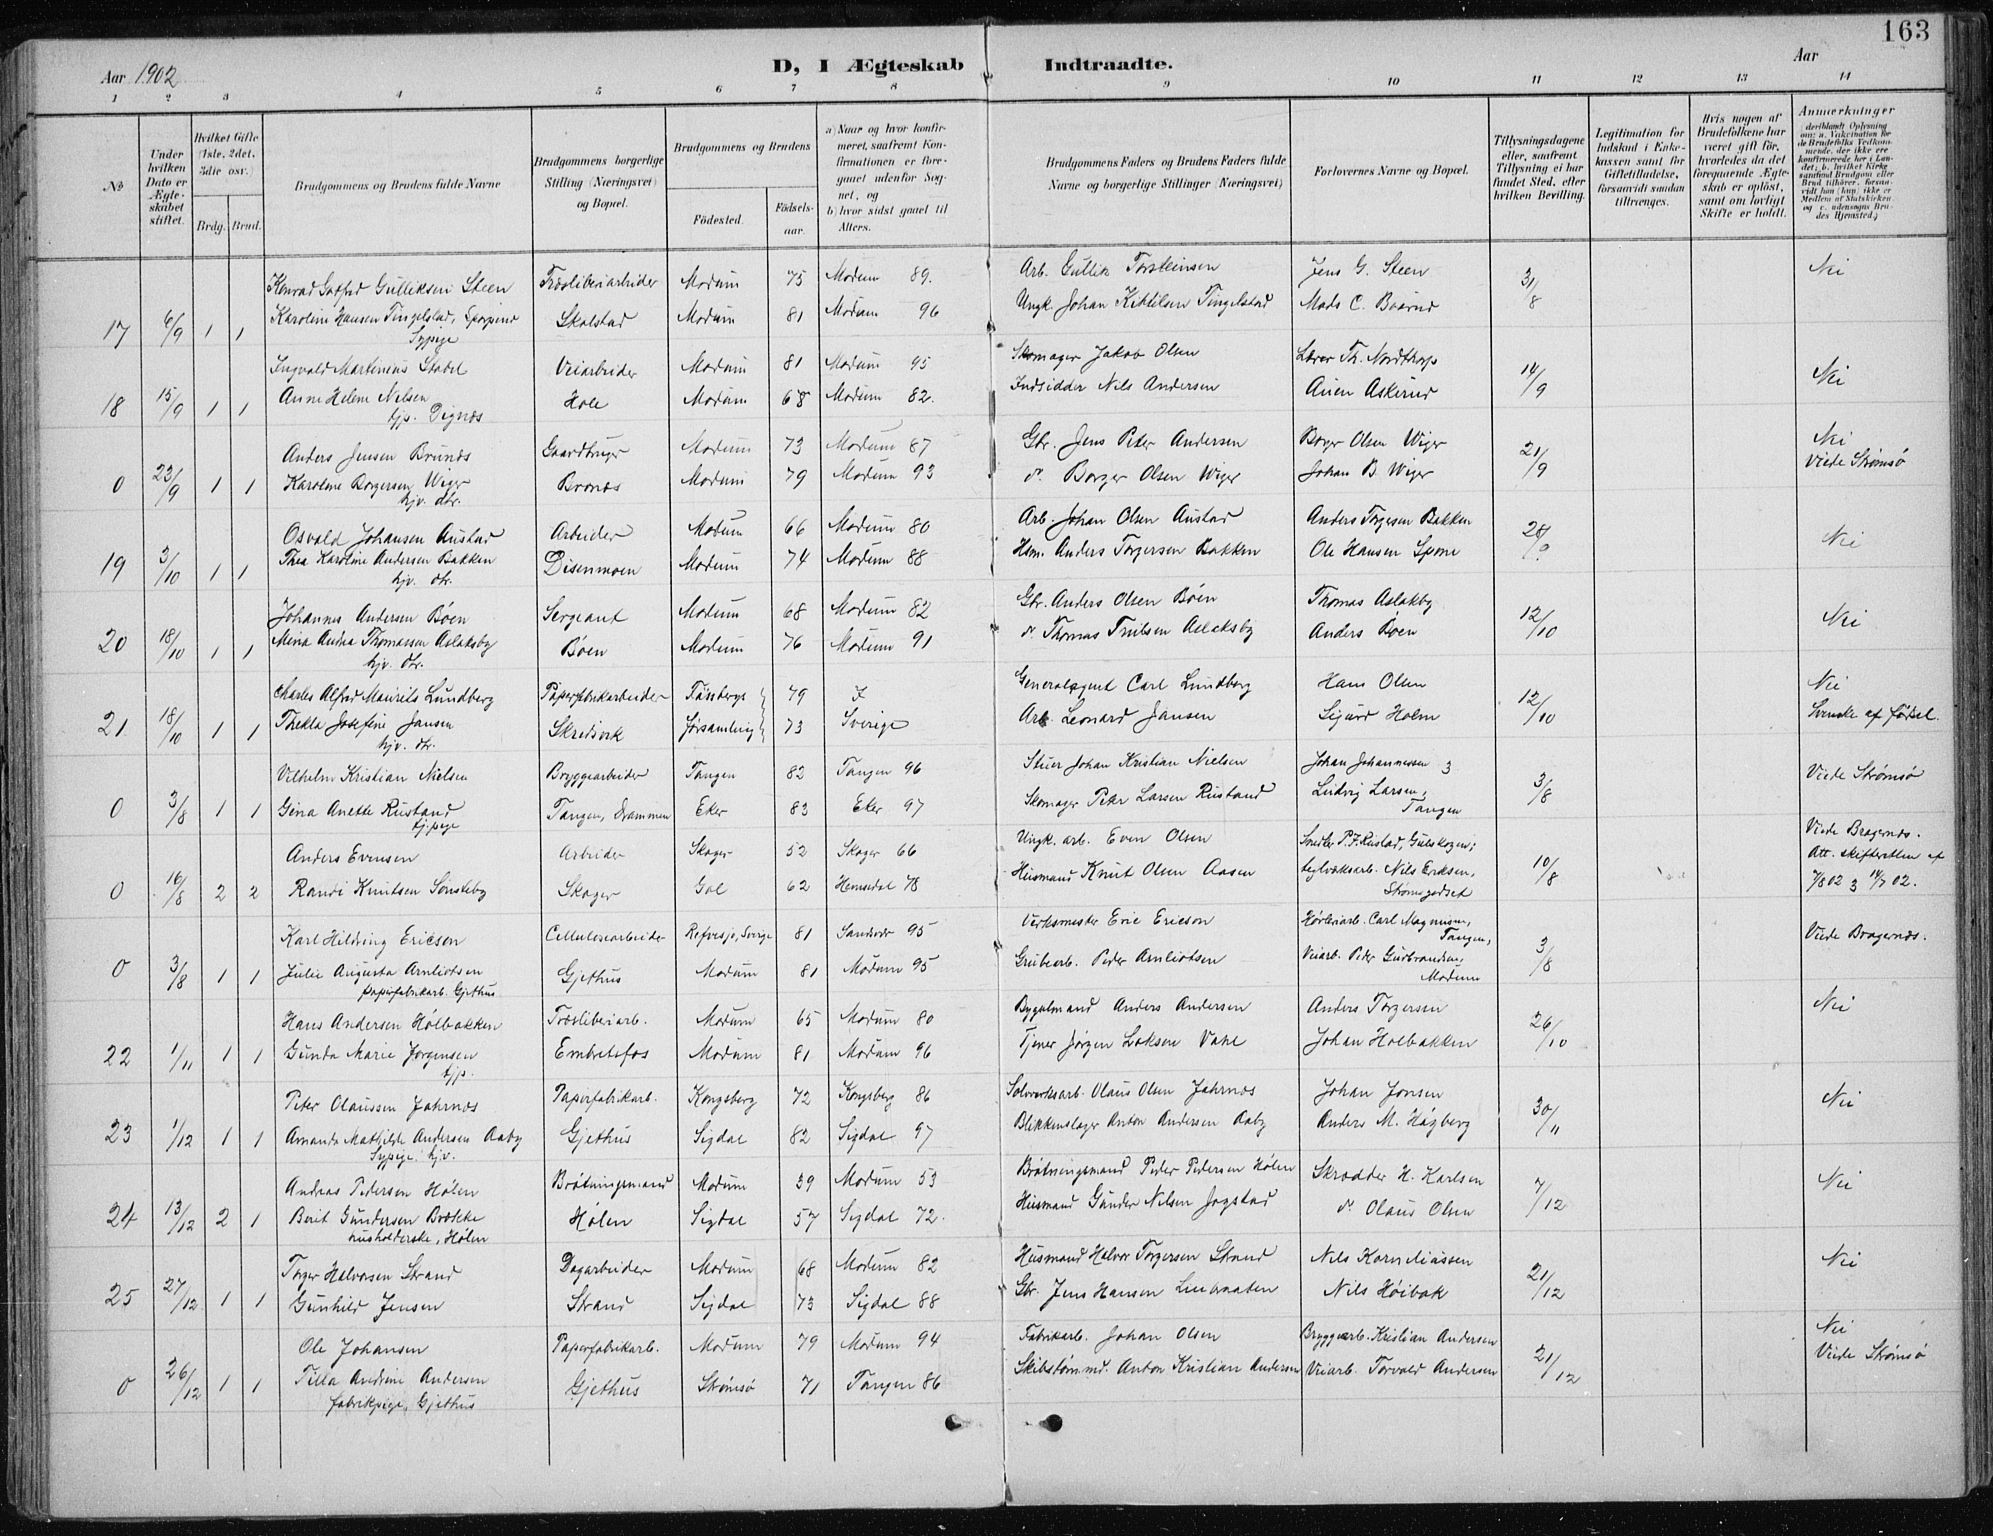 163
Aar 1902
D, I Ægteskab Indtraadte.
Aar
1 2 3 4 5 6 7 8 9 10 11 12 13 14
No
Under hvilken Dato er Ægteskabet stiftet.
Hvilket Gifte (1ste, 2det, 3die osv.)
Brdg. Brud.
Brudgommens og Brudens fulde Navne
Brudgommens borgerlige Stilling (Næringsvei) og Bopæl.
Brudgommens og Brudens
Födested.
Födselsaar.
a) Naar og hvor konfirmeret, saafremt Konfirmationen er foregaaet udenfor Sognet, og
b) hvor sidst gaaet til Alters.
Brudgommens Faders og Brudens Faders fulde Navne og borgerlige Stillinger (Næringsvei)
Forlovernes Navne og Bopæl.
Tillysningsdagene eller, saafremt Tillysning ei har fundet Sted, efter hvilken Bevilling.
Legitimation for Indskud i Enkekassen samt for Giftetilladelse, forsaavidt saadan tiltrænges.
Hvis nogen af Brudefolkene har været gift för, hvorledes da det foregaaende Ægteskab er oplöst, samt om lovligt Skifte er holdt.
Anmærkninger
deriblandt Oplysning om: a. Vakcination for de Brudefolks Vedkommende, der ikke ere konfirmerede her i Landet; b. hvilket Kirkesamfund Brudgom eller Brud tilhörer, forsaavidt han (hun) ikke er Medlem af Statskirken, og c. udensogns Brudes Hjemsted.
Konrad Gotfred Gulliksen Steen Træsliberiarbeider Modum 75 Modum 89. Arb. Gullik Torsteinsen Jens G. Steen 31/8 Nei
17 6/9 1 1 Karoline Hansen Tingelstad, Skalstad Modum 81 Modum 96 Ungk. Johan Kittilsen Tingelstad Mads C. Baarud
Sypige
Ingvald Martinius Stabel Veiarbeider Modum 81 Modum 95 Skomager Jakob Olsen Lærer Th. Nordtorp 14/9 Nei
18 15/9 1 1 Anne Helene Nielsen Hole Modum 68 Modum 82. Indsidder Nils Andersen Auen Askerud
tjp. Dignæs
Anders Jensen Brunæs Gaardbruger Modum 73 Modum 87 Gbr. Jens Peder Andersen Borger Olsen Wiger 21/9 Nei
0 23/9 1 1 Karoline Borgersen Wiger Brones Modum 79 Modum 93 do. Borger Olsen Wiger Johan B. Wiger Viede Strømsø
hjv. dtr.
Osvald Johansen Austad Arbeider Modum 66 Modum 80 Arb. Johan Olsen Austad Anders Torgesen Bakken 28/9 Nei
19 3/10 1 1 Thea Karoline Andersen Bakken Disenmoen Modum 74 Modum 88 Hsm. Anders Torgersen Bakken Ole Hansen Spone
hjv. dtr.
Johannes Andersen Bøen Sergeant Modum 68 Modum 82 Gbr. Anders Olsen Bøen Thomas Aslaksby 12/10 Nei
20 18/10 1 1 Mina Andrea Thomassen Aslaksby Bøen Modum 76 Modum 91 do. Thomas Truilsen Aslaksby Anders Bøen
hjv. dtr.
Charles Alfred Maurits Lundberg Papirfabrikarbeider Tansbergs 79 I Generalagent Carl Lundberg Hans Olsen 12/10 Nei
21. 18/10 1 1 Thekla Josefine Jansen Skredsvik Forsamling 73 Sverige Arb. Leonard Jansen Sigurd Holm Svenske af fødsel.
hjv. dtr.
Vilhelm Kristian Nielsen Bryggearbeider Tangen 82 Tangen 96 Stuer Johan Kristian Nielsen Johan Johannessen 3/8 Viede Strømsø
0 3/8 1 1 Gina Anette Rustand Tangen, Drammen Eker 83 Eker 97 Skomager Peter Larsen Rustand Ludvig Larsen, Tangen
tj.pige
Anders Evensen Arbeider Skoger 52 Skoger 66 Ungk. arb. Even Olsen Snedker P. F. Rustad, Gulskogen; 10/8 Viede Bragernæs.
0 16/8 2 2 Randi Knutsen Sønsteby Skoger Gol 62 Hemsedal 78 Husmand Knut Olsen Aasen teglværksarb. Nils Eriksen, Strømsgodset Att. skifteretten af 7/8 02 & 14/7 02.
Karl Hildring Ericson Cellulosearbeider Refvesjø, Sverige 81 Sandsvær 95 Verksmester Eric Ericson Carl Magnusen, Tangen, 3/8 Viede Bragernæs.
0 3/8 1 1 Julie Augusta Arnliotsen Gjethus Modum 81 Modum 95 Grubearb. Peder Arnliotsen Veiarb. Peter Gudbrandsen, Modum
Papirfabrikarb. Gjethus
Hans Andersen Holbakken Træsliberiarb. Modum 65 Modum 80 Bygselmand Anders Andersen Anders Torgersen 26/10 Nei
22 1/11 1 1 Gunda Marie Jørgensen Embretsfos Modum 81 Modum 96 Tjener Jørgen Loksen Vahl Johan Holbakken
tjp.
Peter Olaussen Jahrnæs Papirfabrikarb. Kongsberg 72 Kongsberg 86 Sølvverksarb. Olaus Olsen Jahrnæs Johan Jonsen 30/11 Nei
23 1/12 1 1 Amanda Mathilde Andersen Aaby Gjethus Sigdal 82 Sigdal 97 Blikkenslager Anton Andersen Aaby Anders M. Høgberg
Sypige hjv.
Andreas Pedersen Hølen Brøtningsmand Modum 39 Modum 53 Brøtningsmand Peder Pedersen Hølen Skrædder H. Karlsen 7/12 Nei
24 13/12 2 1 Berit Gundersen Brække Hølen Sigdal 57 Sigdal 72. Husmand Gunder Nilsen Jogstad do. Olaus Olsen
husholderske, Hølen
Torger Halvorsen Strand Dagarbeider Modum 68 Modum 82 Husmand Halvor Torgersen Strand Nils Korneliussen 21/12 Nei
25 27/12 1 1 Gunhild Jensen Strand Sigdal 73 Sigdal 88 Gbr. Jens Hansen Nils Høibak
Ole Johansen Papirfabrikarb. Modum 79 Modum 94 Fabrikarb. Johan Olsen Bryggarb. Kristian Andersen 21/12 Nei
0 26/12 1 1 Tilla Andrine Andersen Gjethus Strømsø 71 Tangen 86 Skibstømmd. Anton Kristian Andersen Veiarb. Torvald Andersen Viede Strømsø
fabrikpige, Gjethus